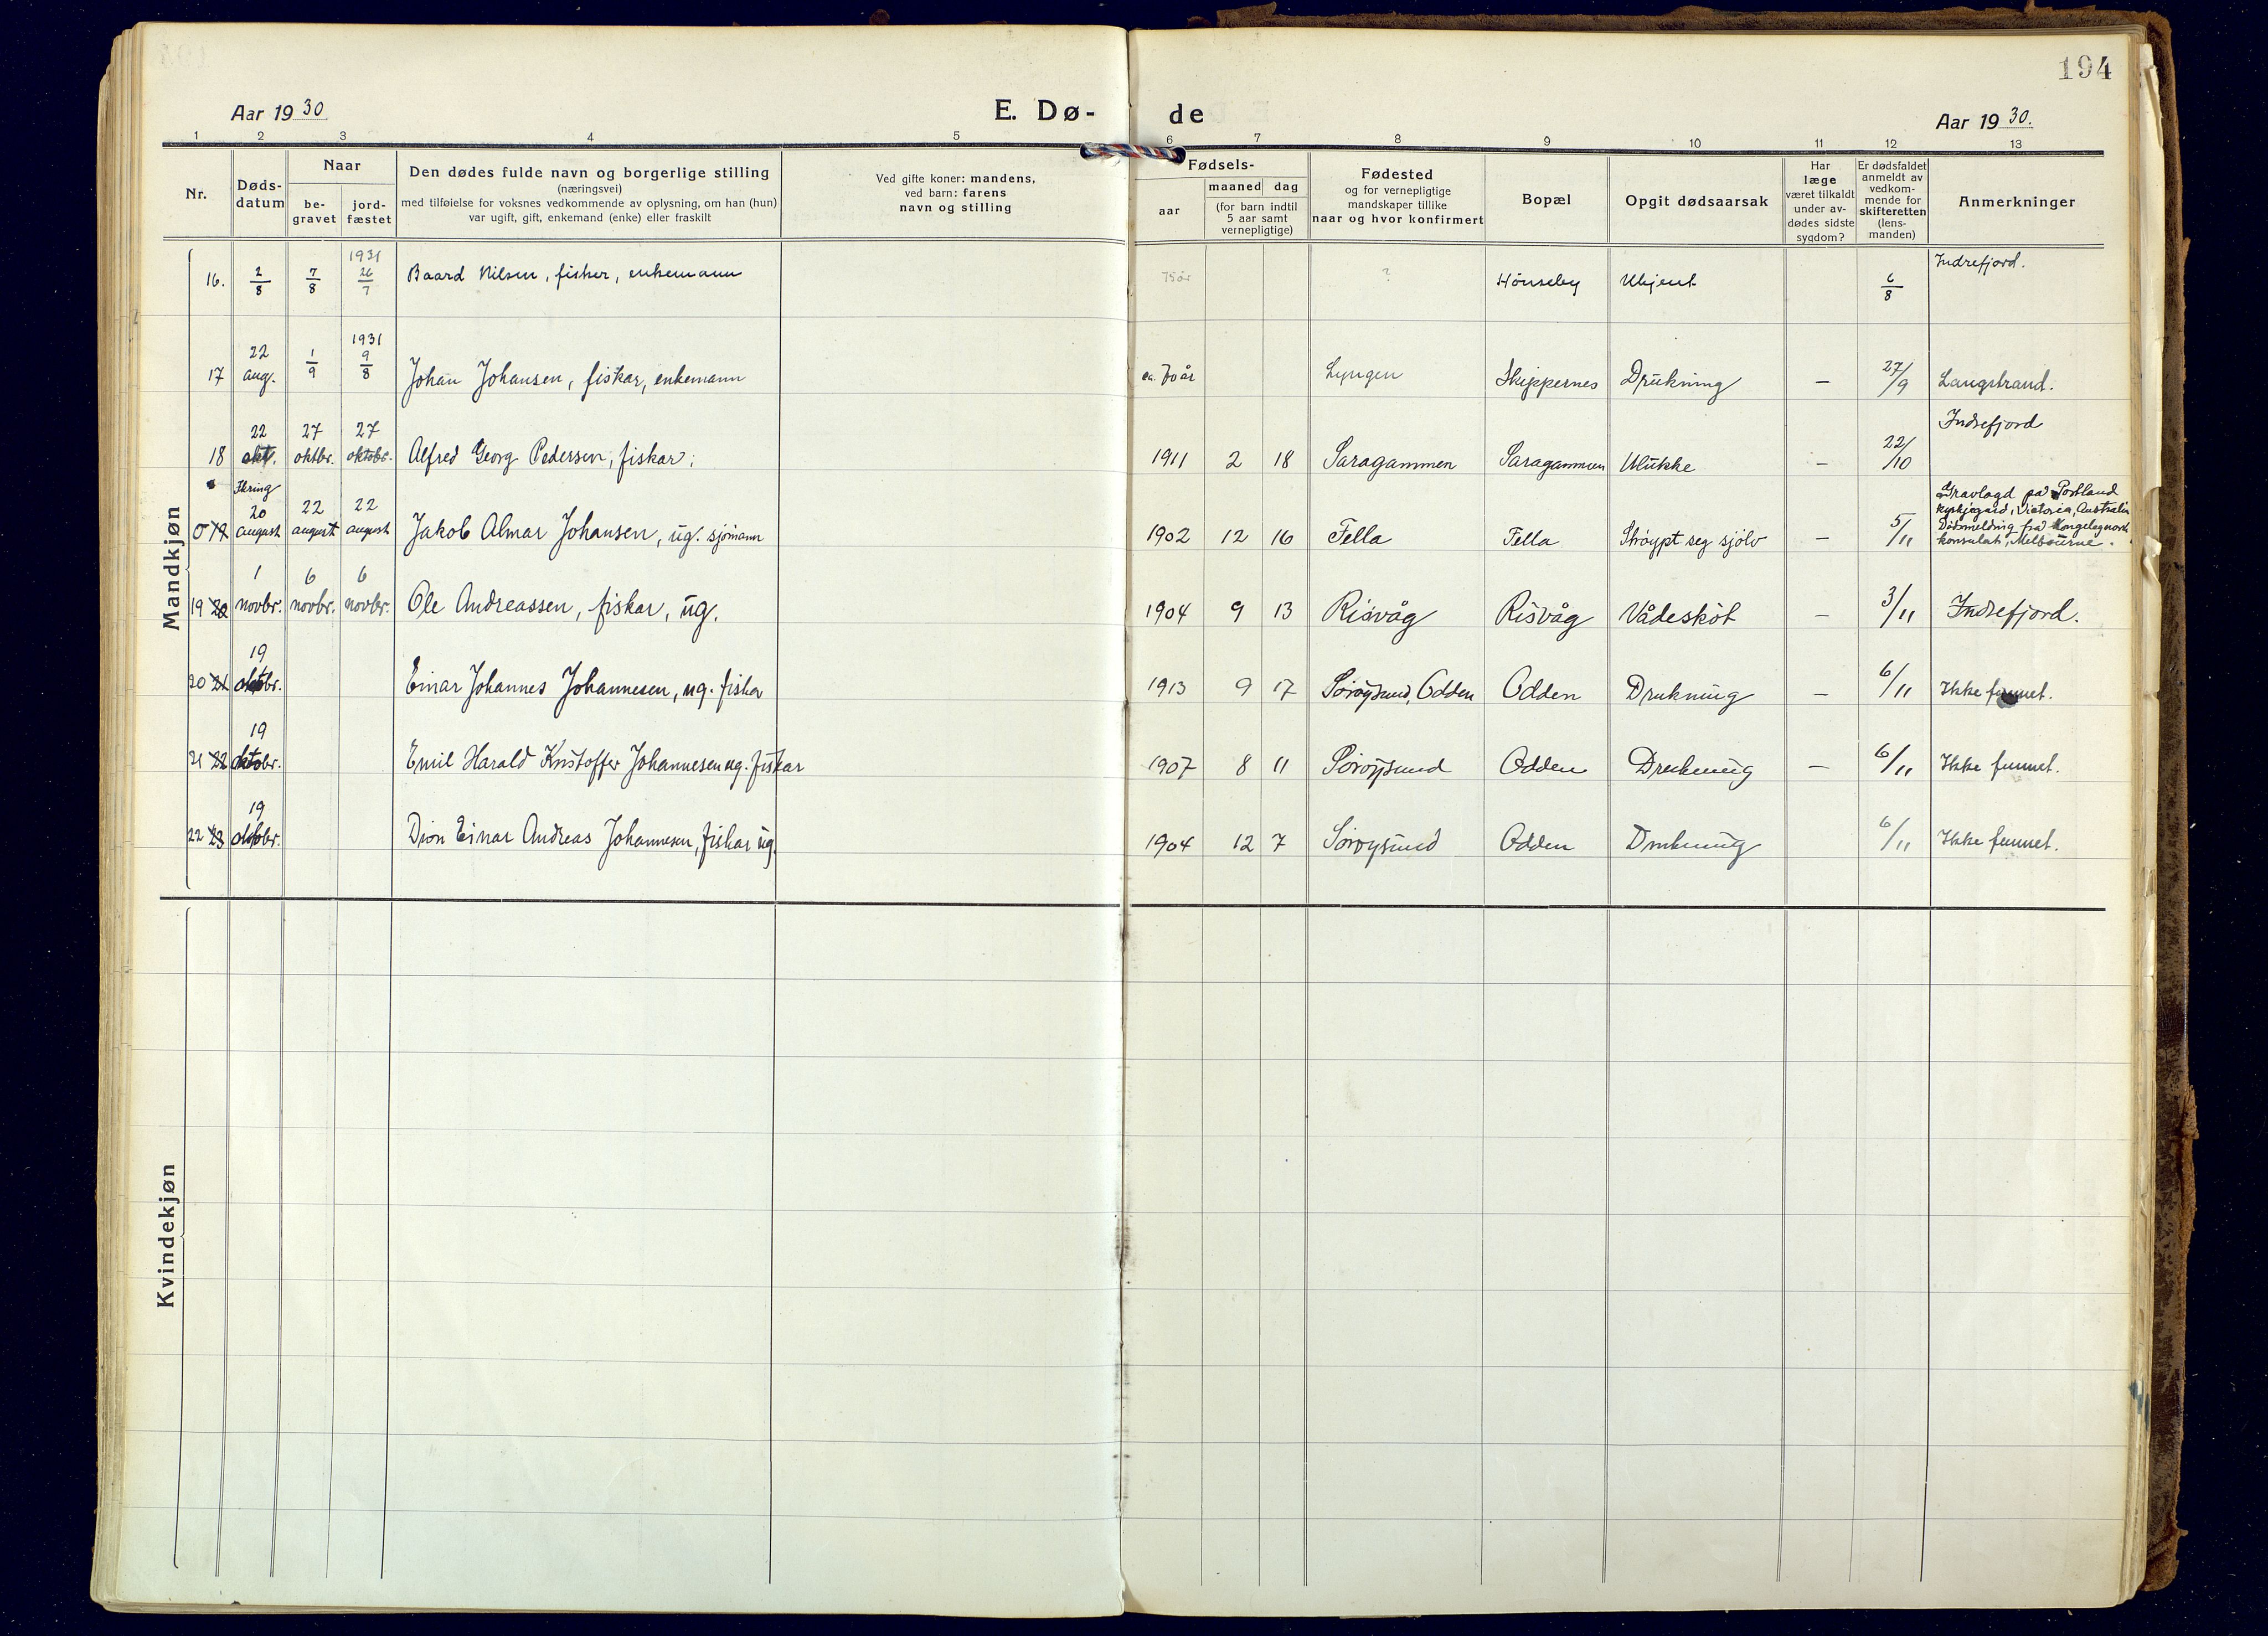 194
Aar 1930
E. Dø-
de
Aar 1930.
1 2 3 4 5 6 7 8 9 10 11 12 13
Nr.
Døds-
datum
Naar
be-
gravet
jord-
fæstet
Den dødes fulde navn og borgerlige stilling
(næringsvei)
med tilføielse for voksnes vedkommende av oplysning, om han (hun)
var ugift, gift, enkemand (enke) eller fraskilt
Ved gifte koner: mandens,
ved barn: farens
navn og stilling
Fødsels-
aar
maaned dag
(for barn indtil
5 aar samt
vernepligtige)
Fødested
og for vernepligtige
mandskaper tillike
naar og hvor konfirmert
Bopæl
Opgit dødsaarsak
Har
læge
været tilkaldt
under av-
dødes sidste
sygdom?
Er dødsfaldet
anmeldt av
vedkom-
mende for
skifteretten
(lens-
manden)
Anmerkninger
Mandkjøn
1931 Indrefjord.
16. 2/8 7/8 26/7 Baard Nilsen, fisker, enkemann 75 år ? Hönseby Ukjent 6/8
1931
17 22 aug. 1/9 9/8 Johan Johansen, fiskar, enkemann ca. 70 år Lyngen Skippernes Drukning – 27/9 Langstrand.
22 27 27 Indrefjord
18 okt. oktbr. oktobr. Alfred Georg Pedersen, fiskar. 1911 2 18 Saragammen Saragammen Ulukke – 22/10
Ikring
20 22 22 Gravlagd på Portland
kyrkjegard, Victoria, Australia
0 19 august august august Jakob Almar Johansen, ug. sjømann 1902 12 16 Fella Fella Strøypt seg sjølv – 5/11 Dødsmelding frå Kongeleg norsk
konsulat, Melbourne.
1 6 6
19 20 novbr. novbr. novbr. Ole Andreassen, fiskar, ug. 1904 9 13 Risvåg Risvåg Vådeskot – 3/11 Indrefjord.
19
20 21 oktobr. Einar Johannes Johannesen, ug. fiskar 1913 9 17 Sørøysund, Odden Odden Drukning – 6/11 Ikke funnet.
19
21 22 oktobr. Emil Harald Kristoffer Johannesen ug. fiskar 1907 8 11 Sørøysund Odden Drukning – 6/11 Ikke funnet.
19
22 23 oktobr. Einar Andreas Johannesen, fiskar ug. 1904 12 7 Sørøysund Odden Drukning 6/11 Ikke funnet.
Kvindekjøn